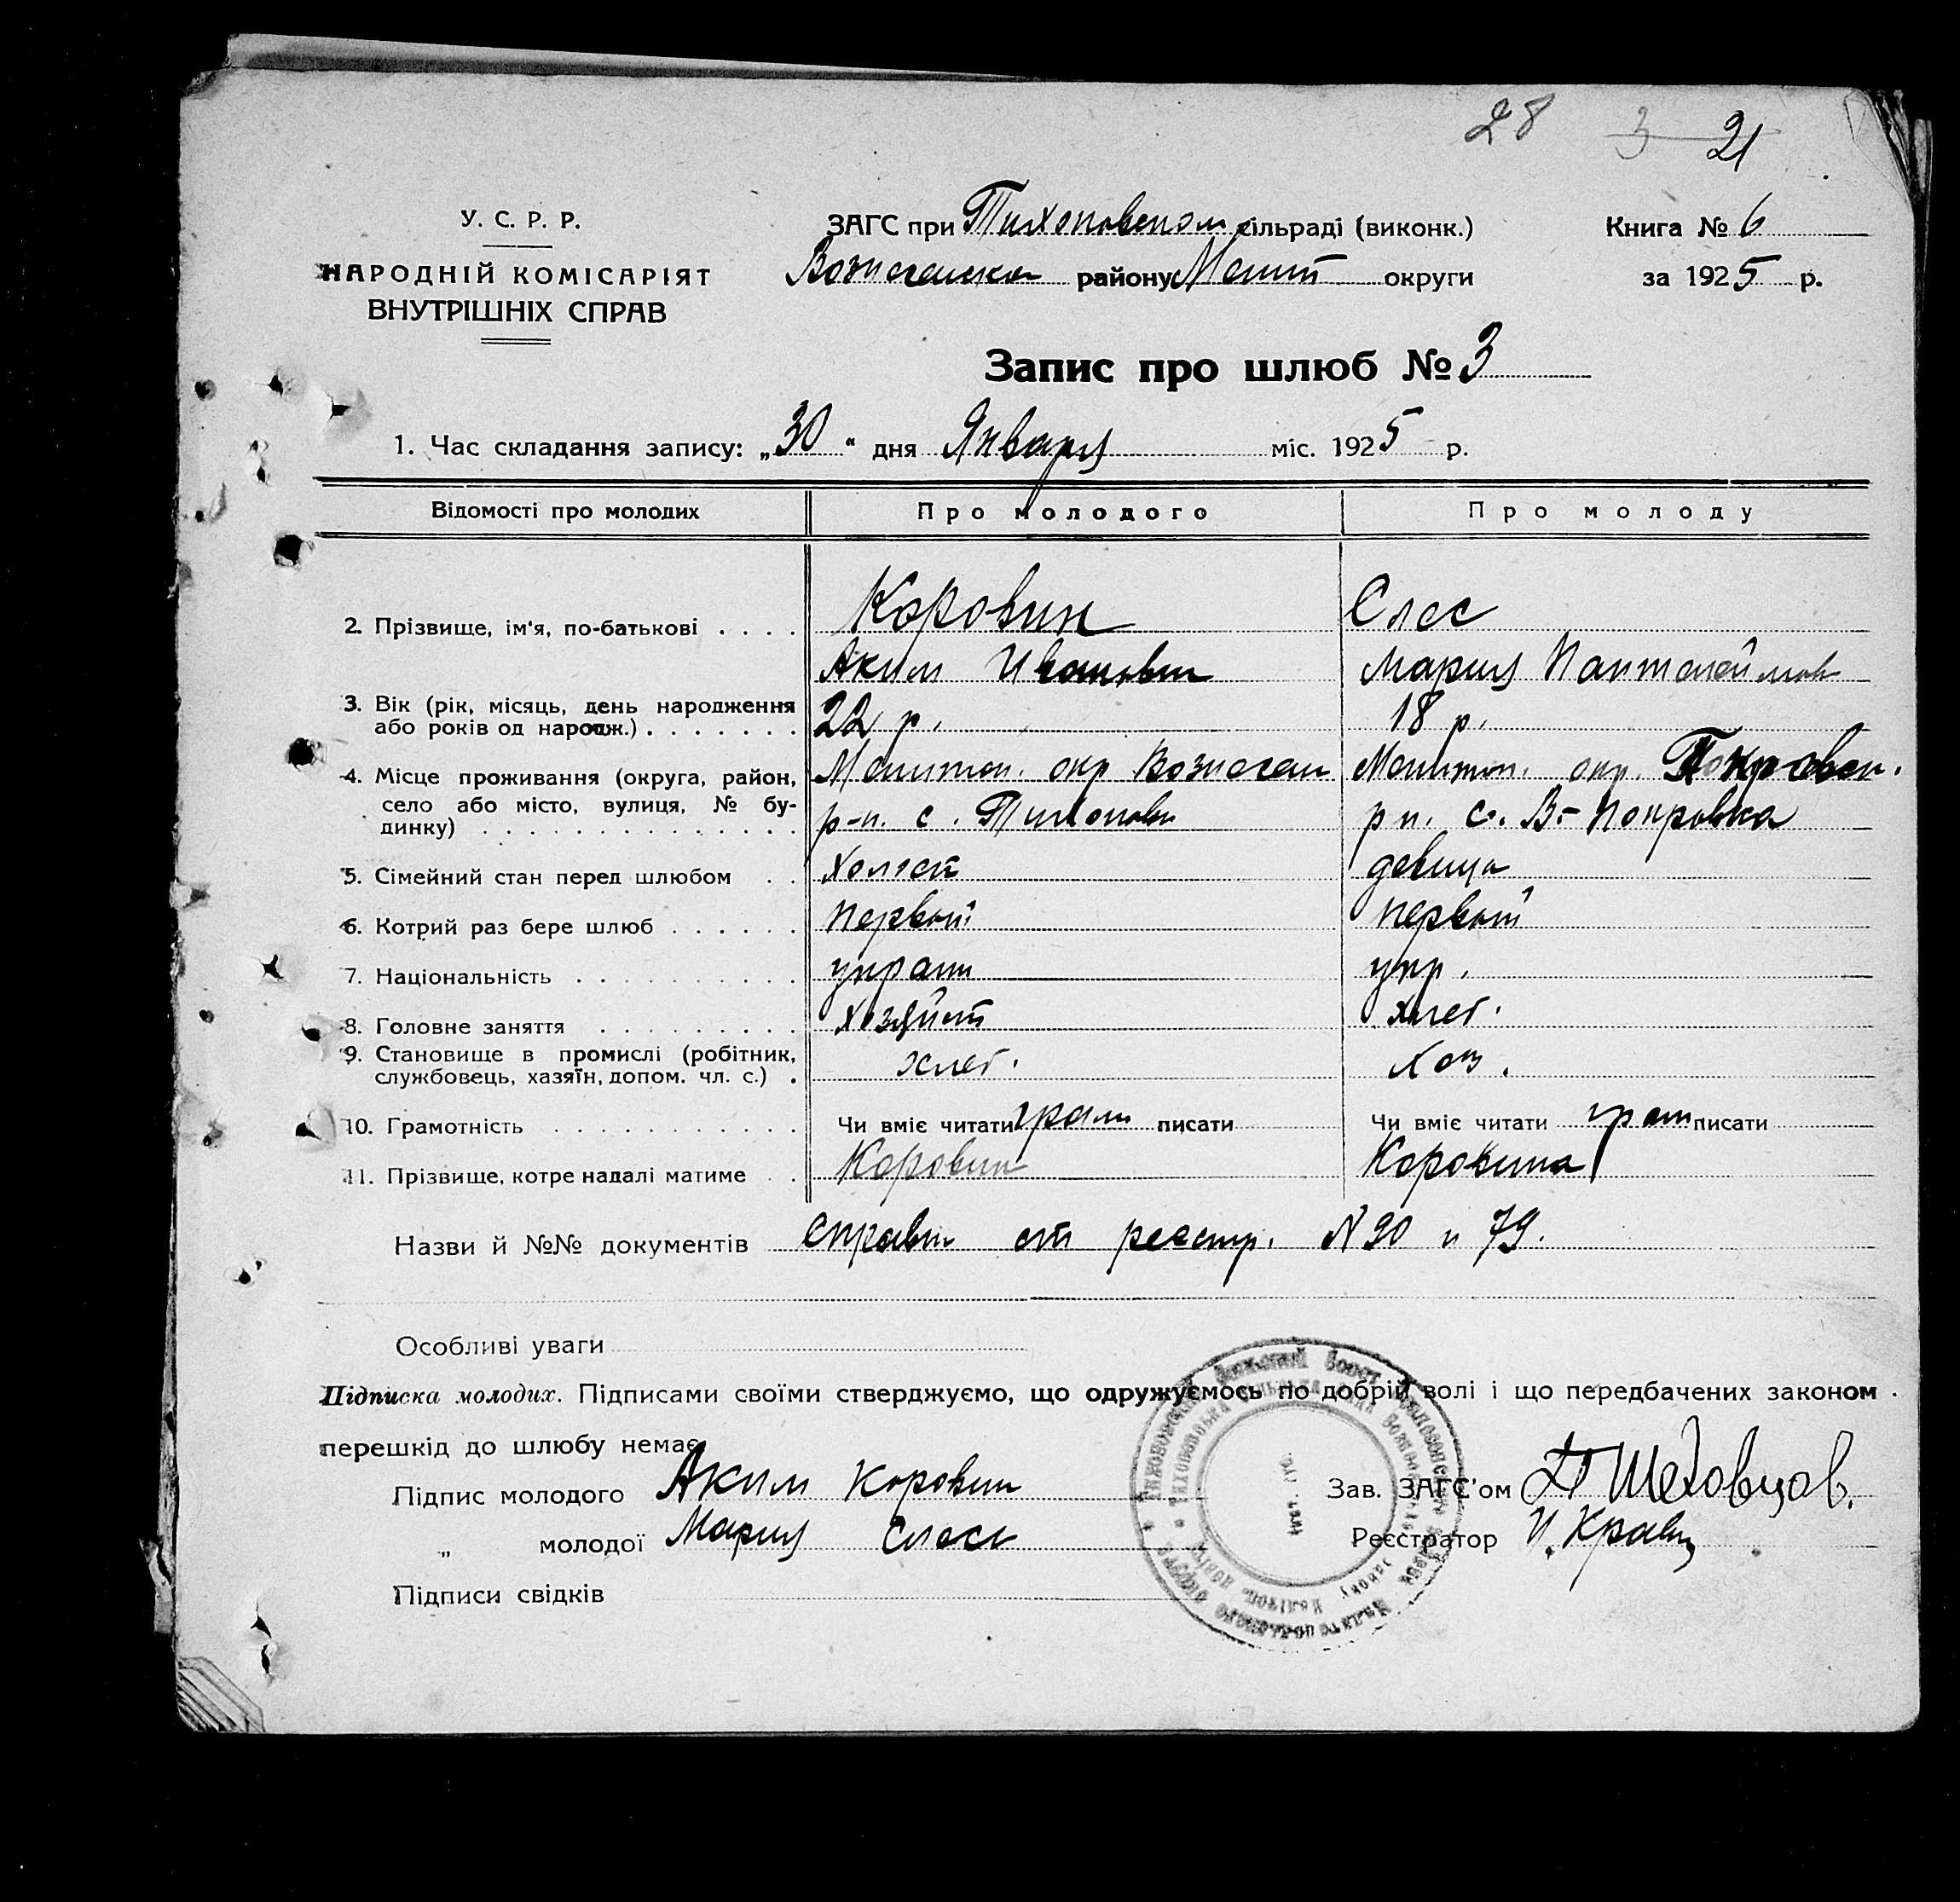 28 3 21
У. С. Р. Р. ЗАГС при Тихоновском сільраді (виконк.) Книга № 6
НАРОДНІЙ КОМІСАРІЯТ Вознесенск району Мелит округи за 1925 р.
ВНУТРІШНІХ СПРАВ
Запис про шлюб № 3
1. Час складання запису: „30“ дня Января міс. 1925 р.
Відомості про молодих Про молодого Про молоду
2. Прізвище, ім'я, по-батькові . . . . Коровин Слесь
Аким Иванович Мария Пантелеймов
3. Вік (рік, місяць, день народження
або років од народж.) . . . . . . . 22 р. 18 р.
4. Місце проживання (округа, район, Мелитоп. окр Вознесен Мелитоп. окр. Покровск.
село або місто, вулиця, № бу- р-н. с. Тихоновк рн. с. В-Покровка
динку) . . . . . . . . . . . . . .
5. Сімейний стан перед шлюбом . . Холост девица
6. Котрий раз бере шлюб . . . . . . первый первый
7. Національність . . . . . . . . . . украин укр.
8. Головне заняття . . . . . . . . . хлеб.
9. Становище в промислі (робітник,
службовець, хазяїн, допом. чл. с.) . хлеб. хоз.
10. Грамотність . . . . . . . . . . . Чи вміє читати грам писати Чи вміє читати грам писати
11. Прізвище, котре надалі матиме . . Коровин Коровина
Назви й №№ документів справки от регистр. N 90 и 79.
Особливі уваги
Підписка молодих. Підписами своїми стверджуємо, що одружуємось по добрій волі і що передбачених законом
перешкід до шлюбу немає.
Підпис молодого Аким Коровин Зав. ЗАГС'ом
„ молодої Мария Слесь Реєстратор И. Кравц
Підписи свідків